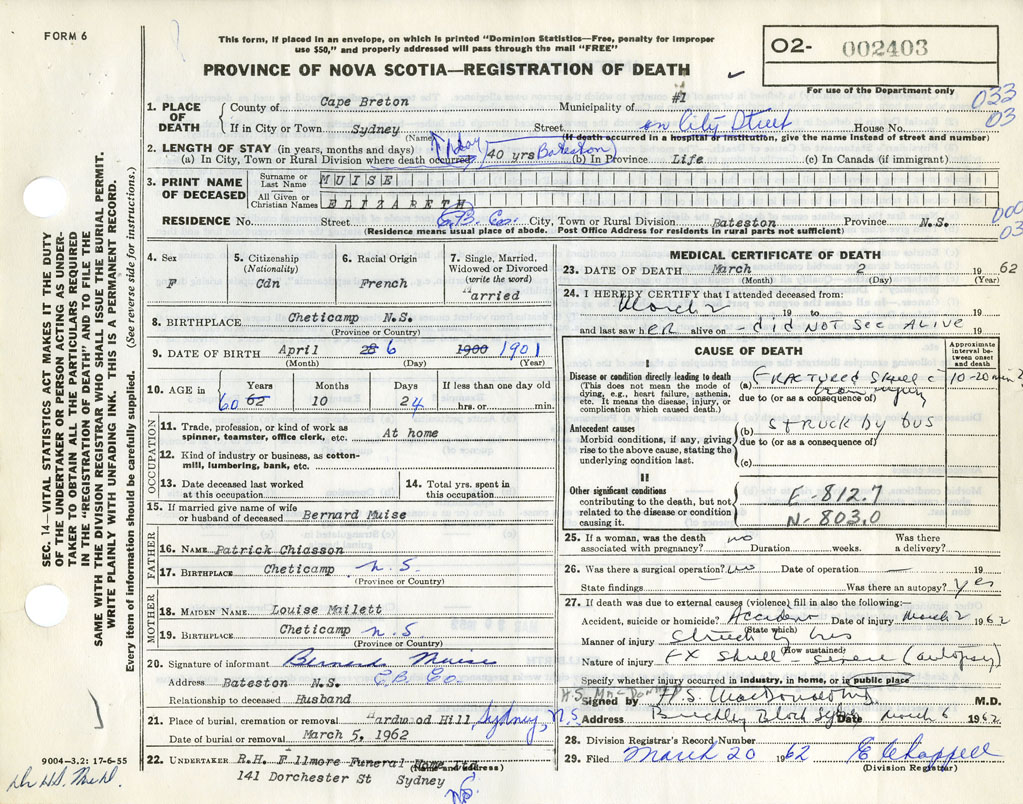 FORM 6
This form, if placed in an envelope, on which is printed "Dominion Statistics—Free, penalty for improper
use $50," and properly addressed will pass through the mail "FREE"
02- 002403
For use of the Department only
PROVINCE OF NOVA SCOTIA—REGISTRATION OF DEATH
033
03
SEC. 14—VITAL STATISTICS ACT MAKES IT THE DUTY
OF THE UNDERTAKER OR PERSON ACTING AS UNDER-
TAKER TO OBTAIN ALL THE PARTICULARS REQUIRED
IN THE "REGISTRATION OF DEATH" AND TO FILE THE
SAME WITH THE DIVISION REGISTRAR WHO SHALL ISSUE THE BURIAL PERMIT.
WRITE PLAINLY WITH UNFADING INK. THIS IS A PERMANENT RECORD.
Every item of information should be carefully supplied. (See reverse side for instructions.)
1. PLACE OF DEATH
County of Cape Breton Municipality of #1
If in City or Town Sydney Street on City Street House No.
(Name) (If death occurred in a hospital or institution, give the name instead of street and number)
2. LENGTH OF STAY (in years, months and days)
(a) In City, Town or Rural Division where death occurred 1 day 40 yrs Bateston (b) In Province Life (c) In Canada (if immigrant)
3. PRINT NAME OF DECEASED
Surname or Last Name MUISE
All Given or Christian Names ELIZABETH
RESIDENCE No. Street C.B. Co. City, Town or Rural Division Bateston Province N.S.
000
03
(Residence means usual place of abode. Post Office Address for residents in rural parts not sufficient)
4. Sex F
5. Citizenship (Nationality) Cdn
6. Racial Origin French
7. Single, Married, Widowed or Divorced (write the word) Married
8. BIRTHPLACE Cheticamp N.S.
(Province or Country)
9. DATE OF BIRTH April 28 6 1900 1901
(Month) (Day) (Year)
10. AGE in Years 60 62 Months 10 Days 24 If less than one day old hrs. or min.
OCCUPATION
11. Trade, profession, or kind of work as spinner, teamster, office clerk, etc. At home
12. Kind of industry or business, as cotton-mill, lumbering, bank, etc.
13. Date deceased last worked at this occupation
14. Total yrs. spent in this occupation
15. If married give name of wife or husband of deceased Bernard Muise
FATHER
16. NAME Patrick Chiasson
17. BIRTHPLACE Cheticamp N.S.
(Province or Country)
MOTHER
18. MAIDEN NAME Louise Mailett
19. BIRTHPLACE Cheticamp N.S
(Province or Country)
20. Signature of informant Bernard Muise
Address Bateston N.S. C.B. Co.
Relationship to deceased Husband
21. Place of burial, cremation or removal Hardwood Hill, Sydney, N.S.
Date of burial or removal March 5, 1962
22. UNDERTAKER R.H. Fillmore Funeral Home Ltd
(Name and address)
141 Dorchester St Sydney
N.S.
9004—3.2: 17-6-55
MEDICAL CERTIFICATE OF DEATH
23. DATE OF DEATH March 2 1962
(Month) (Day) (Year)
24. I HEREBY CERTIFY that I attended deceased from:
March 2 19 to 19
and last saw hER alive on - did NOT See ALIVE 19
CAUSE OF DEATH
Approximate interval between onset and death
I
Disease or condition directly leading to death
(This does not mean the mode of dying, e.g., heart failure, asthenia, etc. It means the disease, injury, or complication which caused death.)
(a) FRACTURED Skull c brain injury 10-20 min
due to (or as a consequence of)
Antecedent causes
Morbid conditions, if any, giving rise to the above cause, stating the underlying condition last.
(b) STRUCK by bus
due to (or as a consequence of)
(c)
II
Other significant conditions
contributing to the death, but not related to the disease or condition causing it.
E-812.7
N-803.0
25. If a woman, was the death associated with pregnancy? no Duration weeks. Was there a delivery?
26. Was there a surgical operation? no Date of operation — 19
State findings Was there an autopsy? Yes
27. If death was due to external causes (violence) fill in also the following:—
Accident, suicide or homicide? Accident Date of injury March 2 1962
(State which)
Manner of injury Struck by bus
(How sustained)
Nature of injury FX Skull - severe (autopsy)
Specify whether injury occurred in industry, in home, or in public place
Signed by H.S. MacDonald M.D.
Address Brickley Block Syd Date March 6 1962
28. Division Registrar's Record Number
29. Filed March 20 1962 E Chappell
(Division Registrar)